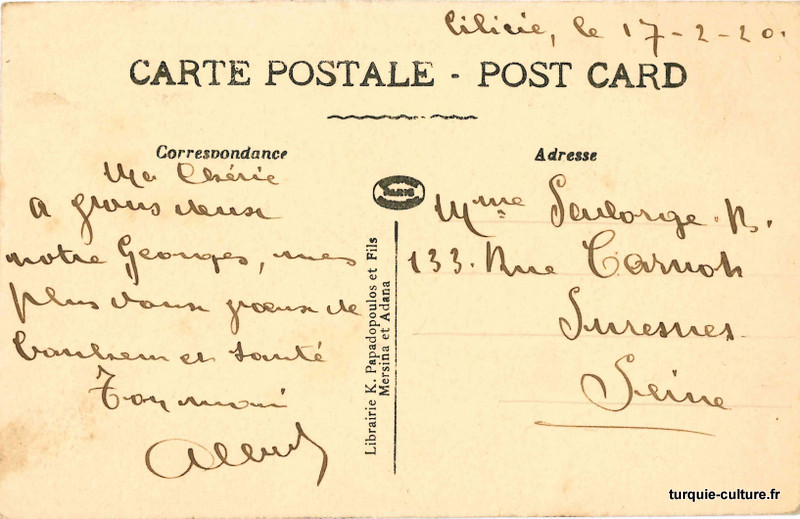 Cilicie, le 17-2-20.
CARTE POSTALE - POST CARD
Correspondance
Ma Chérie
A vous deux
notre Georges, mes
plus doux vœux de
bonheur et santé
Ton mari
PARIS
Librairie K. Papadopoulos et Fils
Mersina et Adana
Adresse
Mme R.
133. Rue Carnot
Suresnes
Seine
turquie-culture.fr